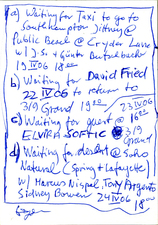 a) Waiting for Taxi to go to
Southampton Jitney @
Public Beach @ Cryder Lane
w/ J.S. + Günts
19 IV 06 18⁰⁰
b) Waiting for David Fried
22 IV 06 to return to
319 Grand 19⁰⁰ 23 IV 06
c) Waiting for guest @ 16⁰⁰
ELVIRA SOFTIC @ 319
Grand
d) Waiting for dessert @ Soho
Natural (Spring + Lafayette)
w/ Marcus Nispel, Tony Argento
Sidney Bowen 24 IV 06 18⁰⁰